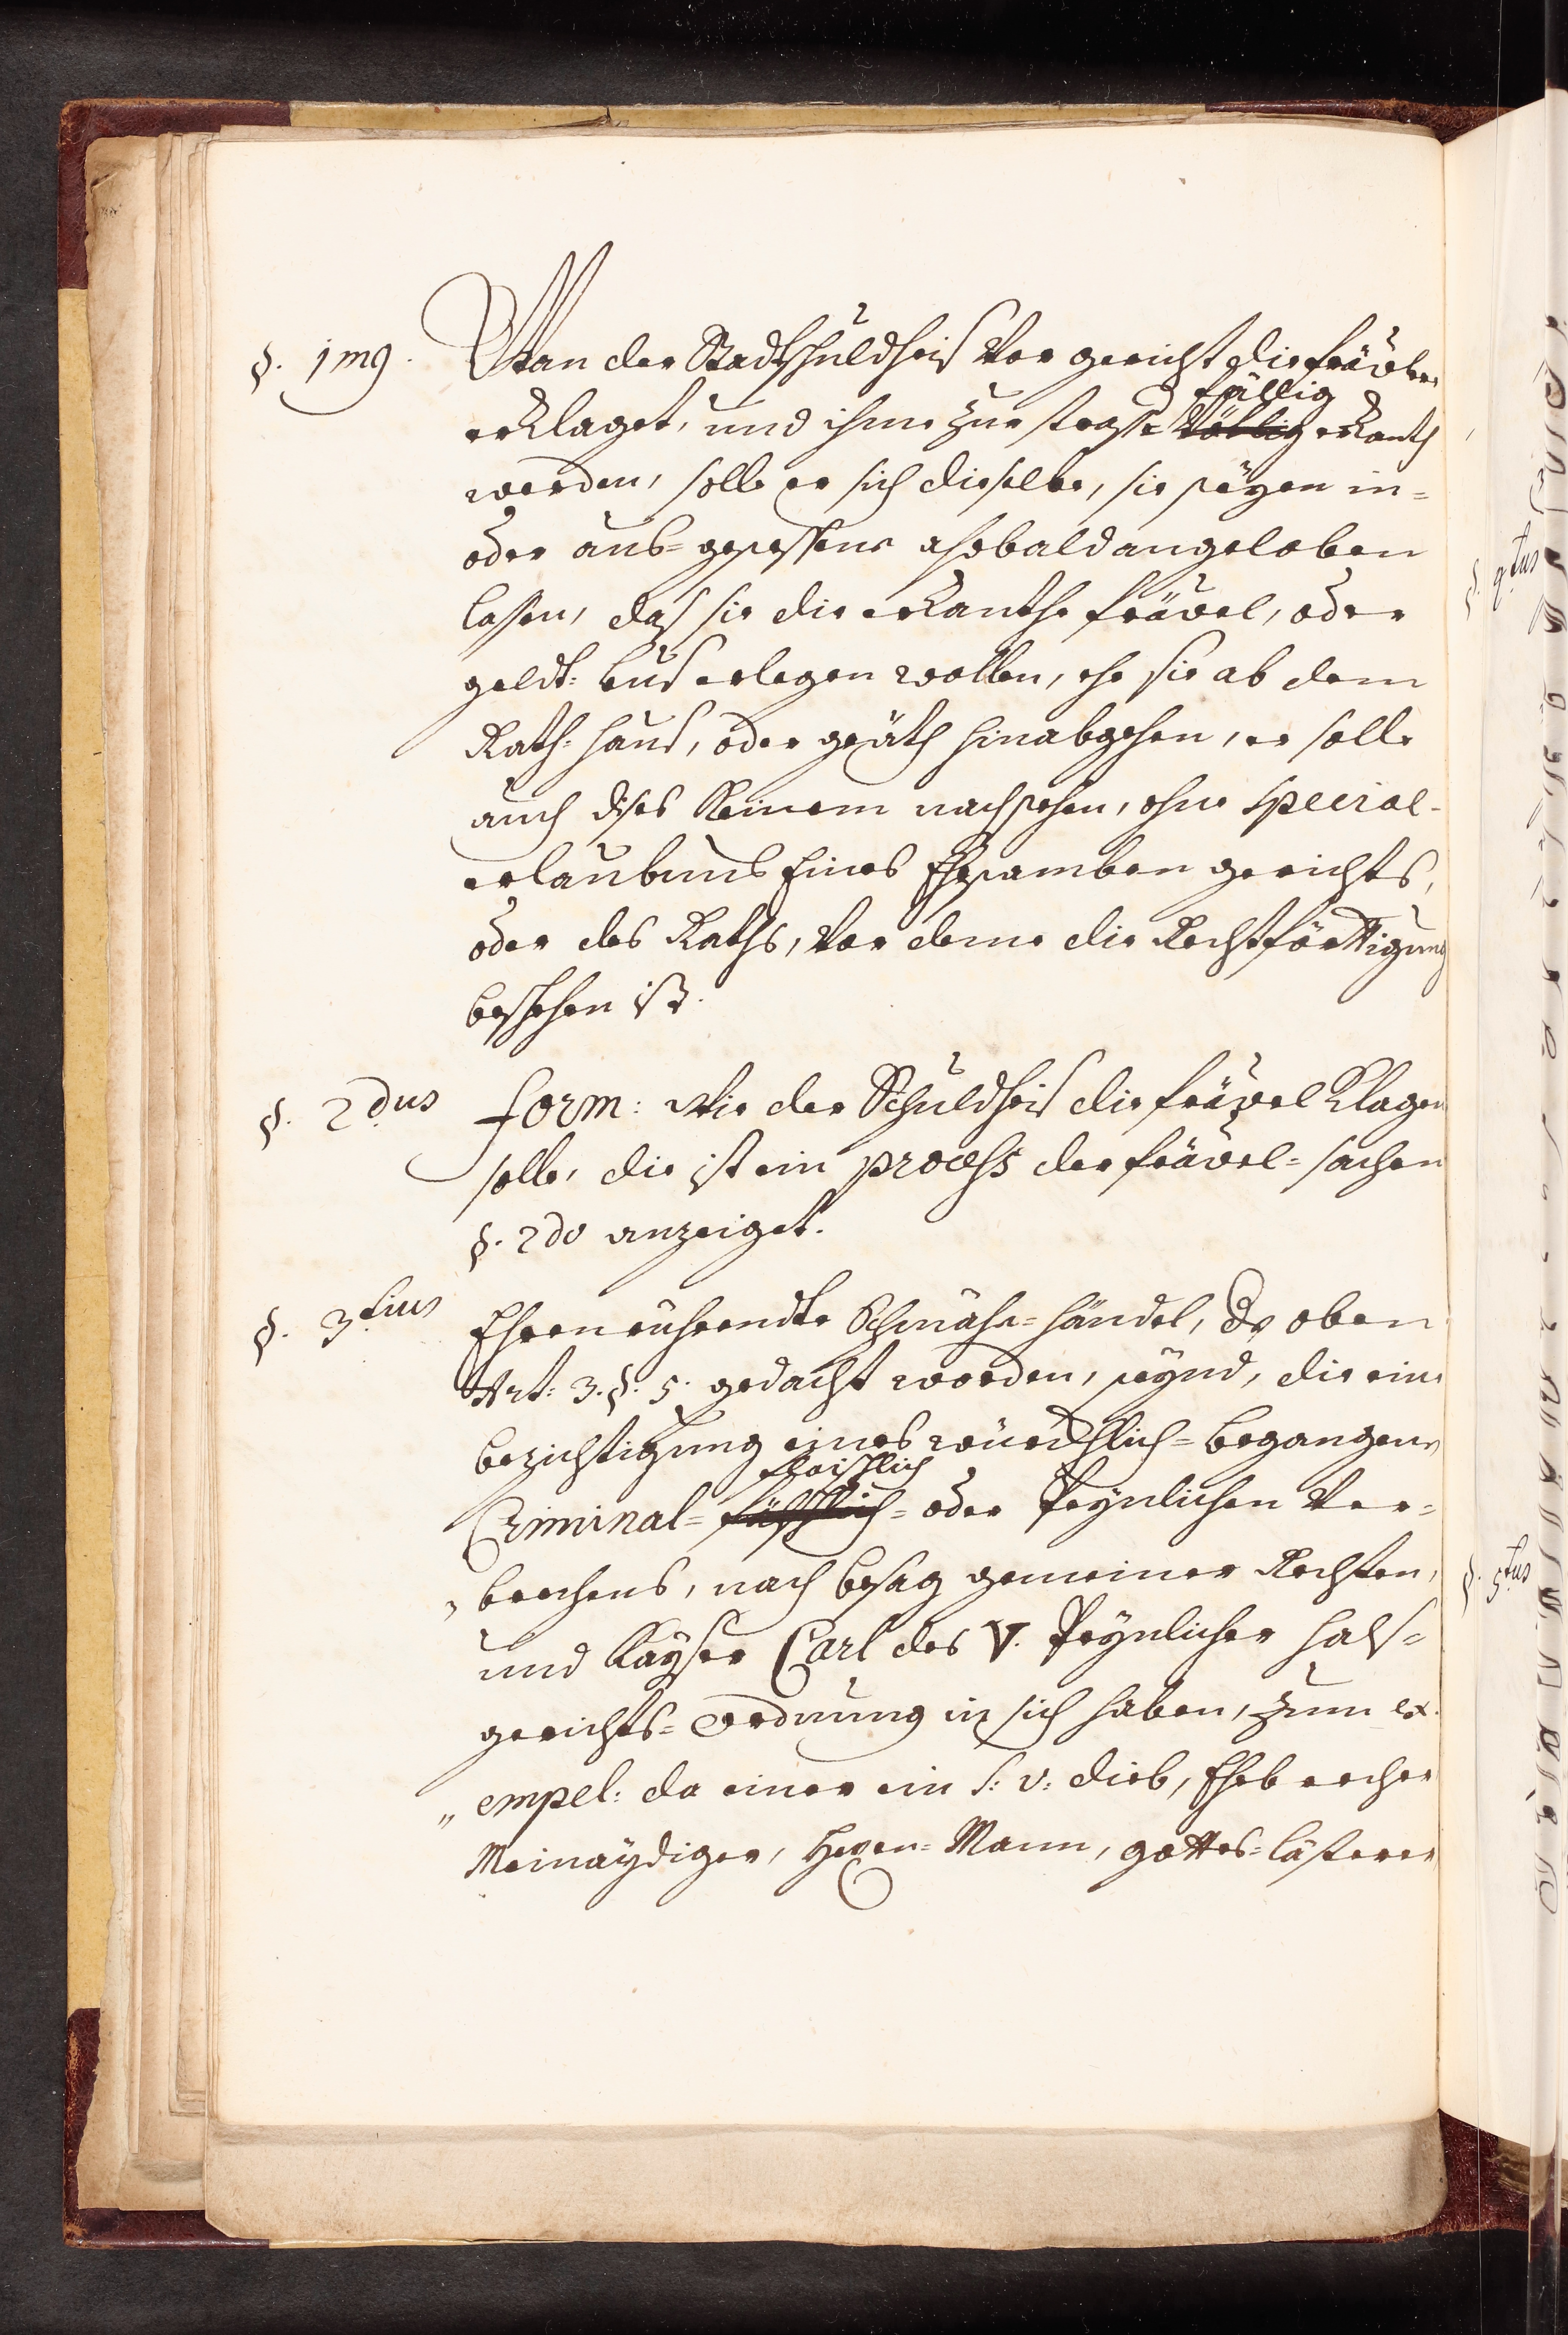 §. 1mg. Wan der Stadtschuldheis vor gericht die fräwler
fällig
erklaget, und ihme zur straffe völlig erkanth
werden, solle er sich dieselbe, sie seyen in-
oder aus-gesessene alsobald angeloben
lassen, daß sie die erkanthe fräwel, oder
geldt: bus erlegen wollen, ehe sie ab dem
Rath-haus, oder gräth hinabgehen, er solle
auch dises Keinem nachsehen, ohne special-
erlaubnus Eines Ehrsamben gerichts,
oder des Raths, vor deme die Rechtförttigung
beschehen ist.
§. 2dus form: Wie der Schuldheis die fräwel Klagen
solle, die ist ein process der fräwel-sachen
§. 2do anzeiget.
§. 3tius Ehrenrührendte Schmähe-händel, der oben
Art: 3. §. 5. gedacht worden, seynd, die eine
bezichtigung eines würcklich-begangene
fleischlich
Criminal- oder Peynlichen Ver-
brechens, nach besag gemeiner Rechten,
und Kayser Carl des V. Peynlicher hals-
gerichts-Ordnung in sich haben, zum ex-
empel: da einer ein S: v: dieb, Ehebrecher
Meinaydiger, Hexen-Mann, gottes-lästerer
§. 4tus
§. 5tus